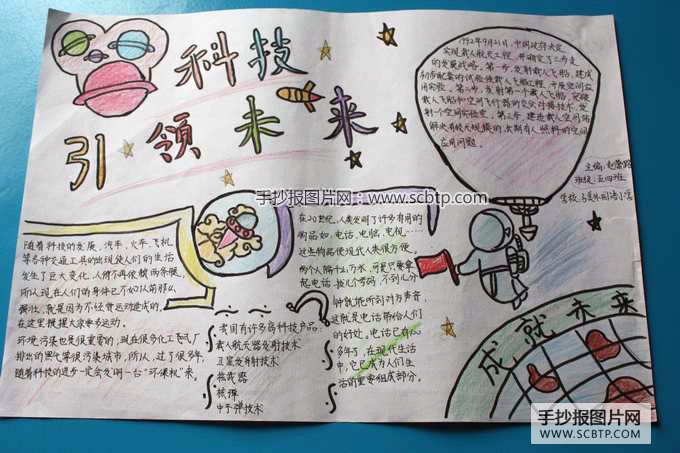 科技
引领未来
1992年9月21日，中国政府决定
实现载人航天工程，并确定了三步走
的发展战略。第一步，发射载人飞船，建成
初步配套的试验性载人飞船工程，开展空间应
用实验。第二步，发射第一个载人飞船，突破
载人飞船和空间飞行器的交会对接技术，发
射一个空间实验室。第三步，建造载人空间站
解决有较大规模的、长期有人照料的空间
应用问题。
主编：
班级：五四班
学校：
手抄报图片网：www.scbtp.com
随着科技的发展，汽车、火车、飞机
等各种交通工具的出现使人们的生活
发生了巨大变化，人们不再依赖两条腿，
所以现在人们的身体已不如以前那么
强壮，就是因为不经常运动造成的，
在这里提醒大家要多运动。
环境污染也是很重要的，现在很多化工气厂
排出的黑化等很污染城市，所以，过了很多年
随着科技的进步一定会发明一台“环保机”来。
在20世纪，人类发明了许多有用的
物品如：电话、电脑、电视……
这些物品使现代人类很方便。
两个人隔十万八千
起电话，拨几个号码，不到几分
钟就能听到对方声音，
这就是电话带给人们
的好处，电话已有
多年了，在现代生活
中，它已成为人们生
活的重要组成部分。
我国有许多高科技产品
载人航天器发射技术
卫星发射技术
核武器
核弹
中子弹技术
成就未来
手抄报图片网
WWW.SCBTP.COM